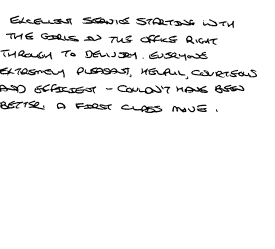 EXCELLENT SERVICE STARTING WITH
THE GIRLS IN THE OFFICE RIGHT
THROUGH TO DELIVERY. EVERYONE
EXTREMELY PLEASANT, HELPFUL, COURTEOUS
AND EFFICIENT - COULDN'T HAVE BEEN
BETTER. A FIRST CLASS MOVE.